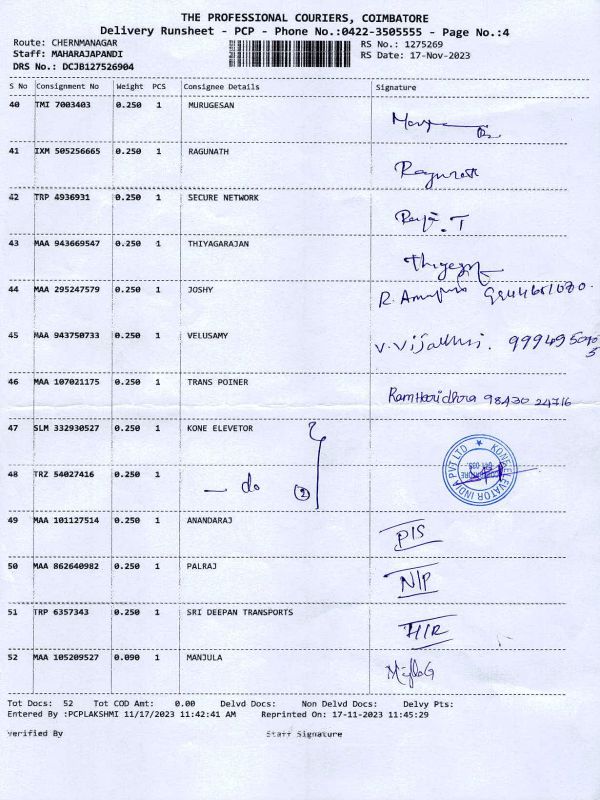 THE PROFESSIONAL COURIERS, COIMBATORE
Delivery Runsheet - PCP - Phone No.:0422-3505555 - Page No.:4
Route: CHERNMANAGAR RS No.: 1275269
Staff: MAHARAJAPANDI RS Date: 17-Nov-2023
DRS No.: DCJB127526904
S No Consignment No Weight PCS Consignee Details Signature
40 TMI 7003403 0.250 1 MURUGESAN
41 IXM 505256665 0.250 1 RAGUNATH Ragunath
42 TRP 4936931 0.250 1 SECURE NETWORK Raja. T
43 MAA 943669547 0.250 1 THIYAGARAJAN
44 MAA 295247579 0.250 1 JOSHY R.
45 MAA 943750733 0.250 1 VELUSAMY V. Vijalakshmi.
46 MAA 107021175 0.250 1 TRANS POINER 98430 24716
47 SLM 332930527 0.250 1 KONE ELEVETOR
KONE ELEVATOR INDIA PVT LTD
48 TRZ 54027416 0.250 1 - do (2)
49 MAA 101127514 0.250 1 ANANDARAJ P/S
50 MAA 862640982 0.250 1 PALRAJ N/P
51 TRP 6357343 0.250 1 SRI DEEPAN TRANSPORTS H/R
52 MAA 105209527 0.090 1 MANJULA
Tot Docs: 52 Tot COD Amt: 0.00 Delvd Docs: Non Delvd Docs: Delvy Pts:
Entered By :PCPLAKSHMI 11/17/2023 11:42:41 AM Reprinted On: 17-11-2023 11:45:29
Verified By Staff Signature